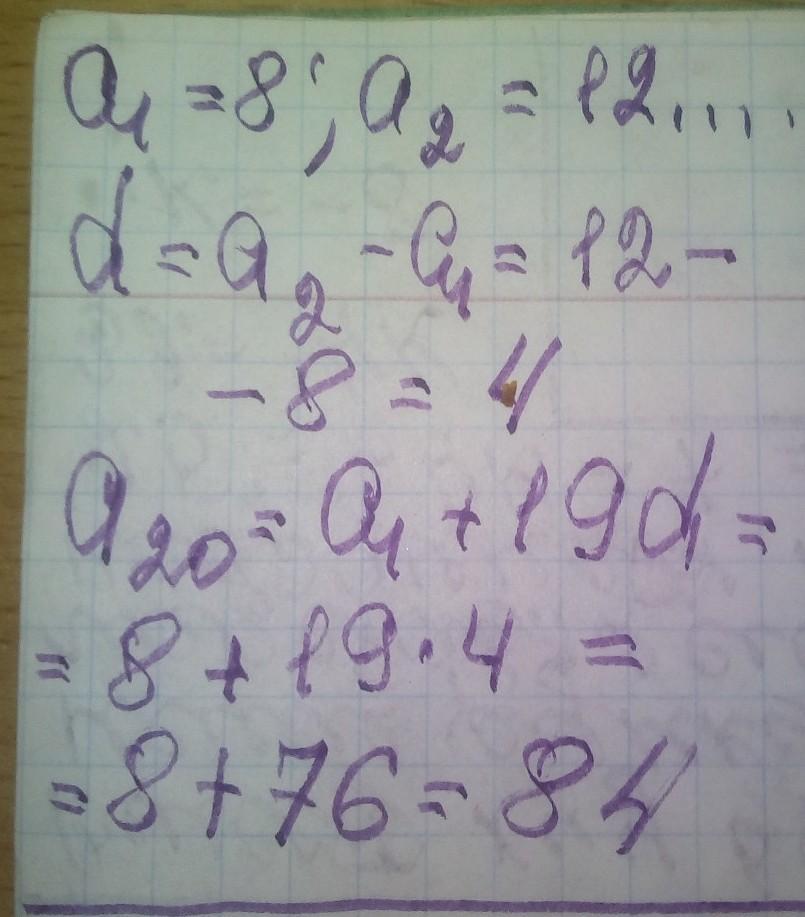 a₁ = 8; a₂ = 12....
d = a₂ - a₁ = 12 -
- 8 = 4
a₂₀ = a₁ + 19d =
= 8 + 19 · 4 =
= 8 + 76 = 84